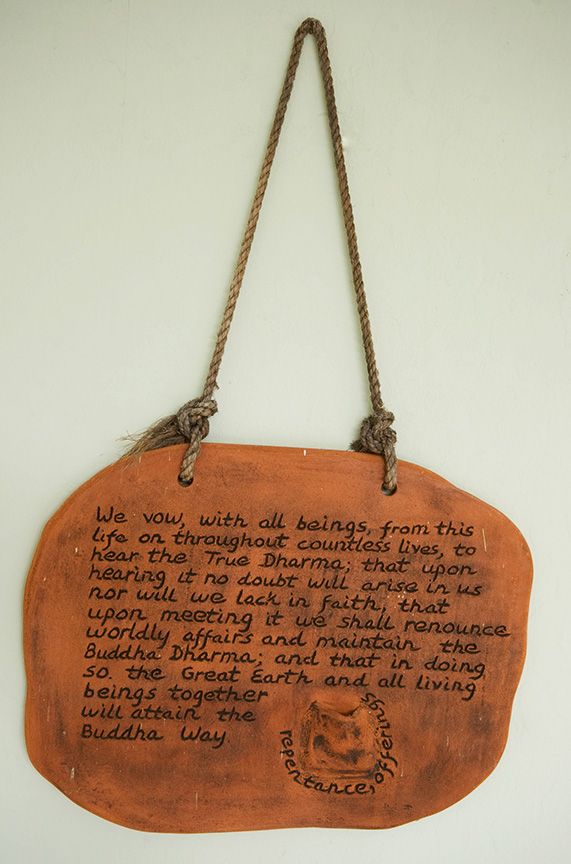 We vow, with all beings, from this
life on throughout countless lives, to
hear the True Dharma; that upon
hearing it no doubt will arise in us
nor will we lack in faith; that
upon meeting it we shall renounce
worldly affairs and maintain the
Buddha Dharma; and that in doing
so. the Great Earth and all living
beings together
will attain the
Buddha Way.
repentance, offerings